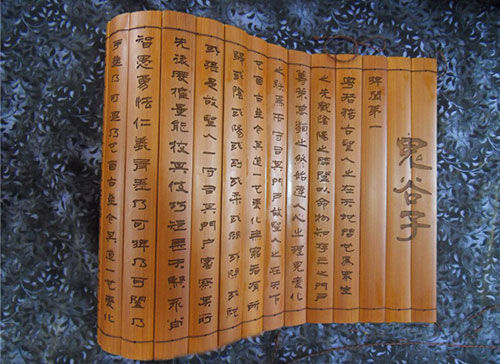 鬼谷子
捭闔第一
粤若稽古聖人之在天地間也為衆生
之先觀陰陽之開闔以命物知存亡之門戶
籌策萬類之終始達人心之理見變化
之朕焉而守司其門戶故聖人之在天下
也自古至今其道一也變化無窮各有所
歸或陰或陽或柔或剛或開或閉或弛
或張是故聖人一守司其門戶審察其所
先後度權量能校其伎巧短長夫賢不肖
智愚勇怯仁義有差乃可捭乃可闔乃
可進乃可退乃也自古至今其道一也變化